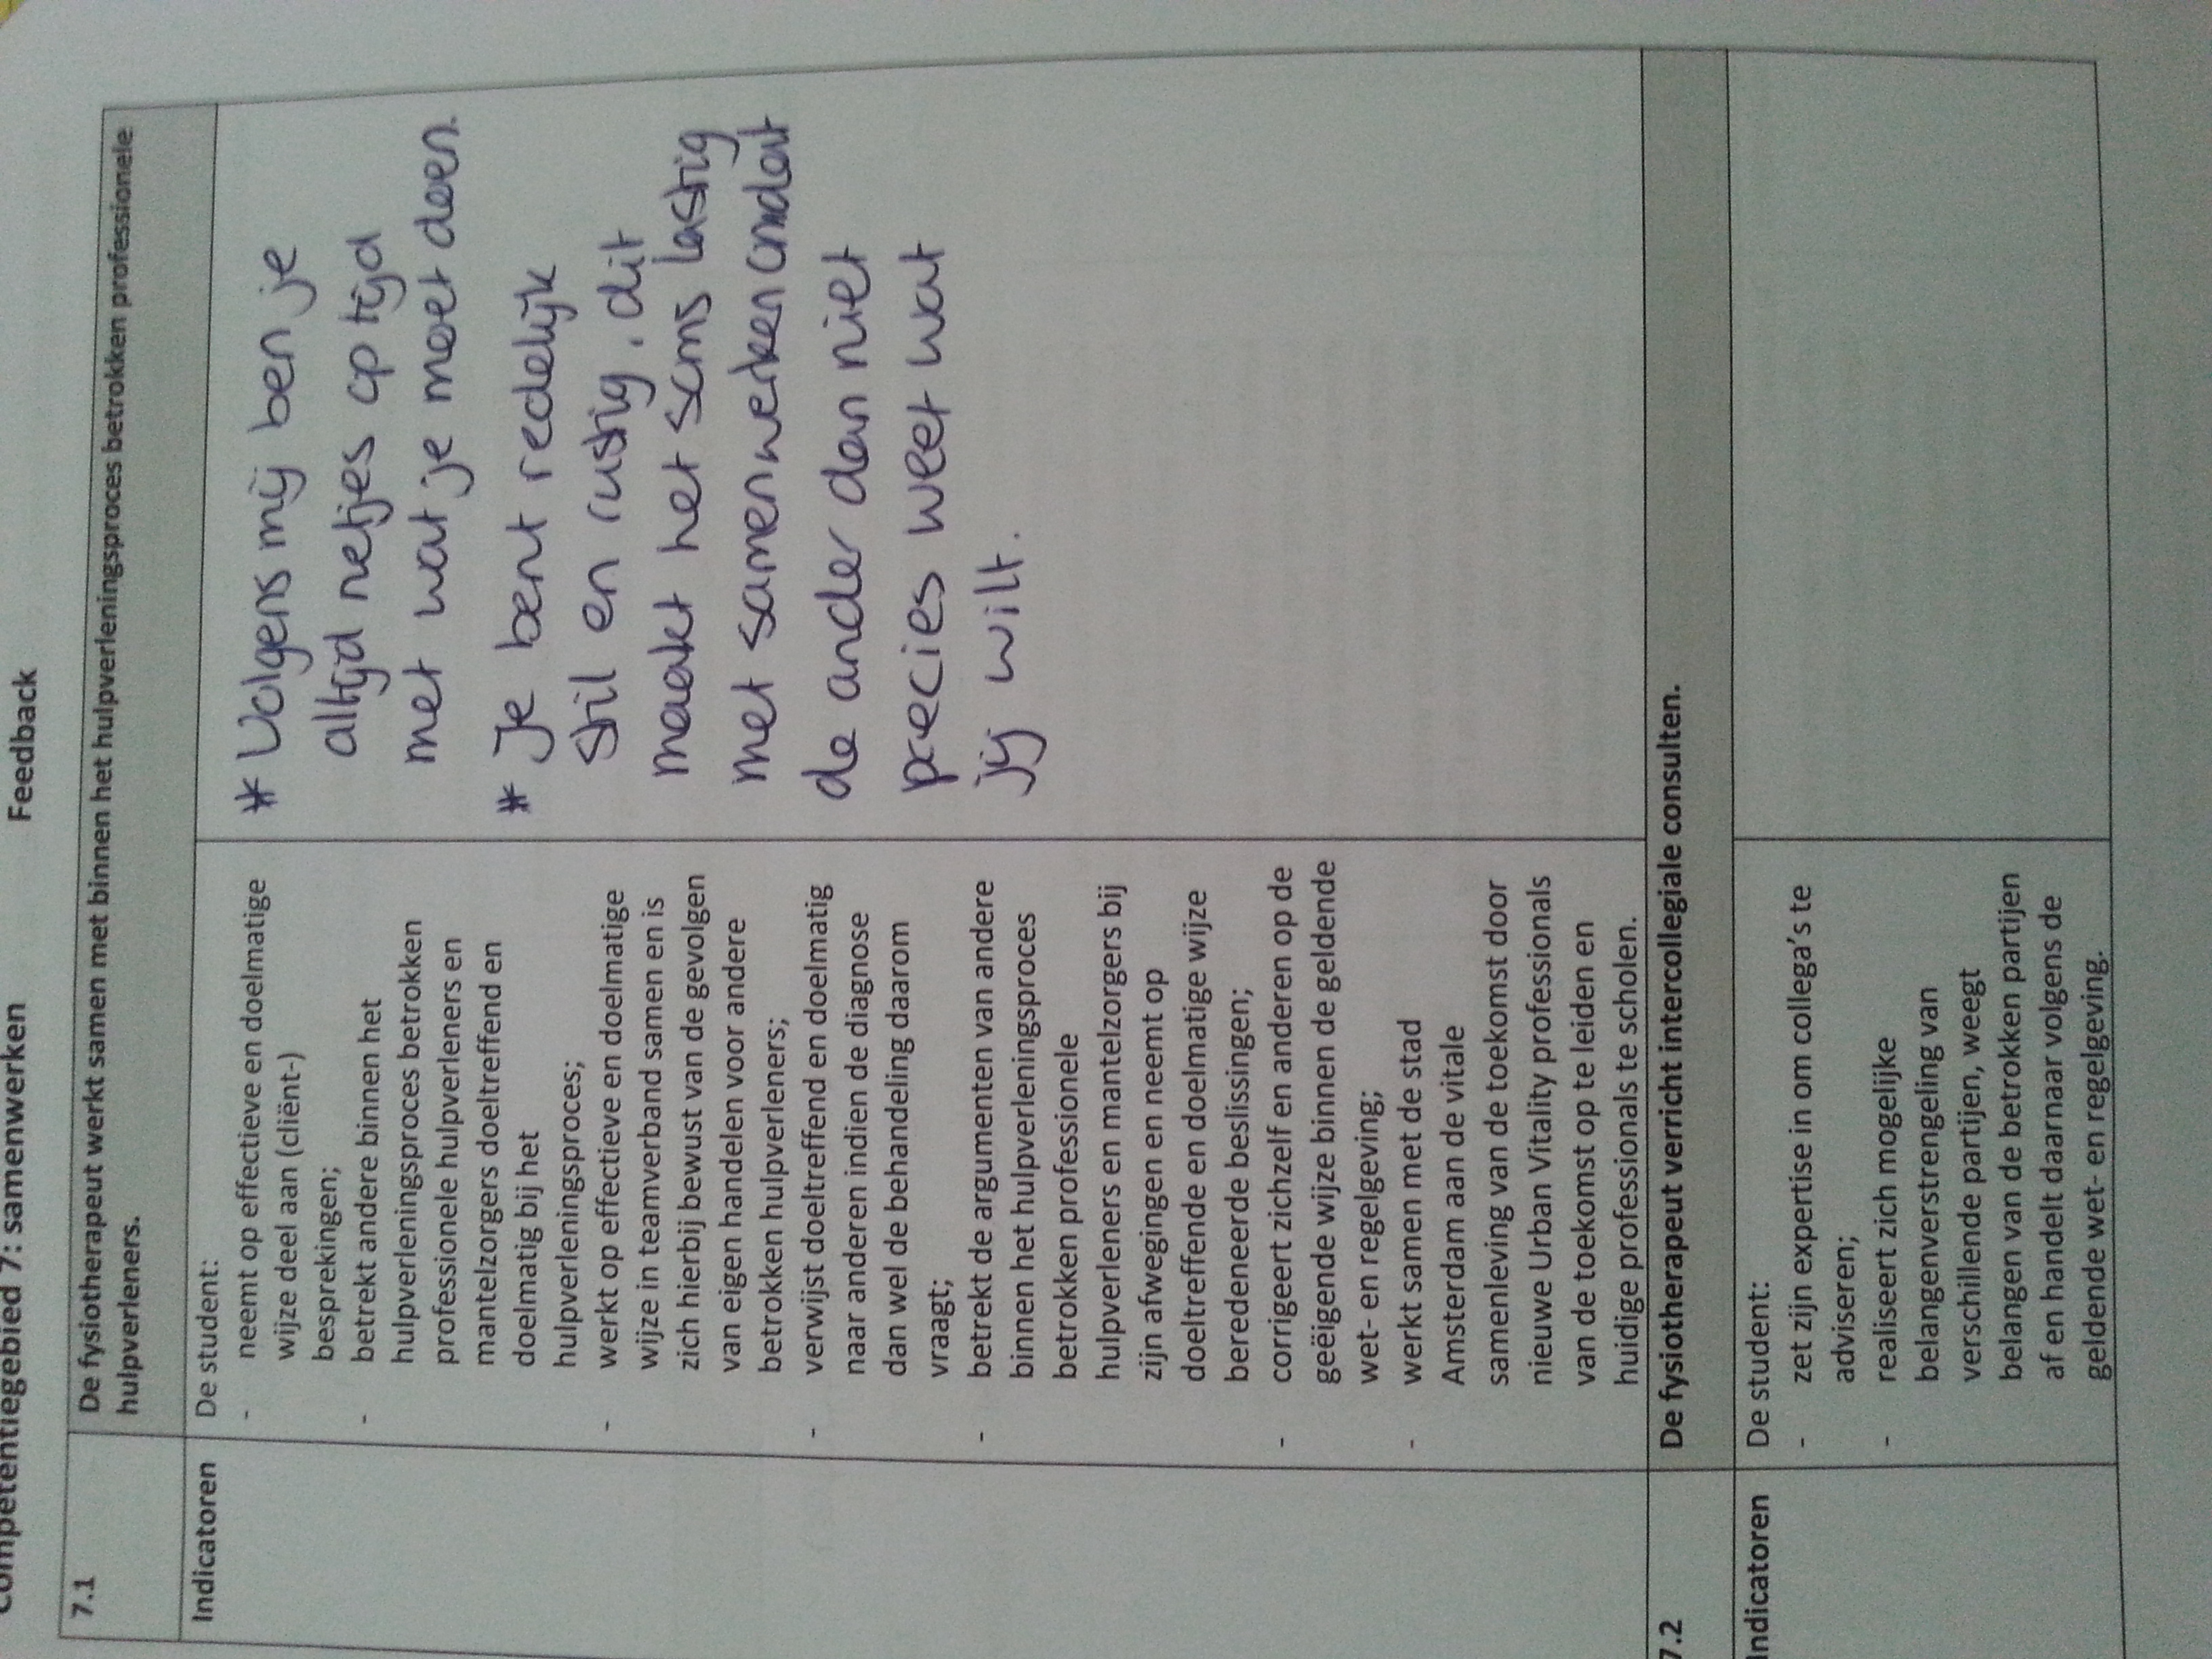 Competentiegebied 7: samenwerken Feedback
7.1 De fysiotherapeut werkt samen met binnen het hulpverleningsproces betrokken professionele
hulpverleners.
Indicatoren
De student:
- neemt op effectieve en doelmatige
wijze deel aan (cliënt-)
besprekingen;
- betrekt andere binnen het
hulpverleningsproces betrokken
professionele hulpverleners en
mantelzorgers doeltreffend en
doelmatig bij het
hulpverleningsproces;
- werkt op effectieve en doelmatige
wijze in teamverband samen en is
zich hierbij bewust van de gevolgen
van eigen handelen voor andere
betrokken hulpverleners;
- verwijst doeltreffend en doelmatig
naar anderen indien de diagnose
dan wel de behandeling daarom
vraagt;
- betrekt de argumenten van andere
binnen het hulpverleningsproces
betrokken professionele
hulpverleners en mantelzorgers bij
zijn afwegingen en neemt op
doeltreffende en doelmatige wijze
beredeneerde beslissingen;
- corrigeert zichzelf en anderen op de
geëigende wijze binnen de geldende
wet- en regelgeving;
- werkt samen met de stad
Amsterdam aan de vitale
samenleving van de toekomst door
nieuwe Urban Vitality professionals
van de toekomst op te leiden en
huidige professionals te scholen.
* Volgens mij ben je
altijd netjes op tijd
met wat je moet doen.
* Je bent redelijk
stil en rustig, dit
maakt het soms lastig
met samenwerken omdat
de ander dan niet
precies weet wat
jij wilt.
7.2 De fysiotherapeut verricht intercollegiale consulten.
Indicatoren
De student:
- zet zijn expertise in om collega's te
adviseren;
- realiseert zich mogelijke
belangenverstrengeling van
verschillende partijen, weegt
belangen van de betrokken partijen
af en handelt daarnaar volgens de
geldende wet- en regelgeving.